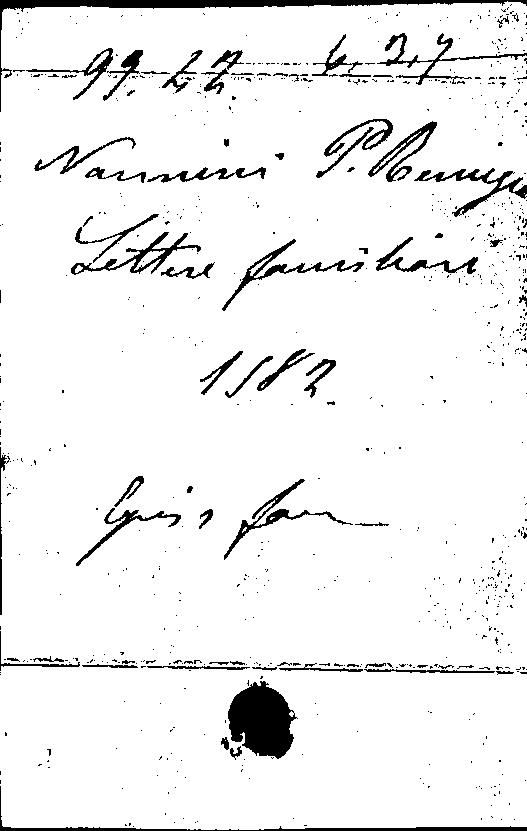 99. 22. 6, 3, 7
Nannini P. Remigio
Lettere familiari
1582.
Epis fam